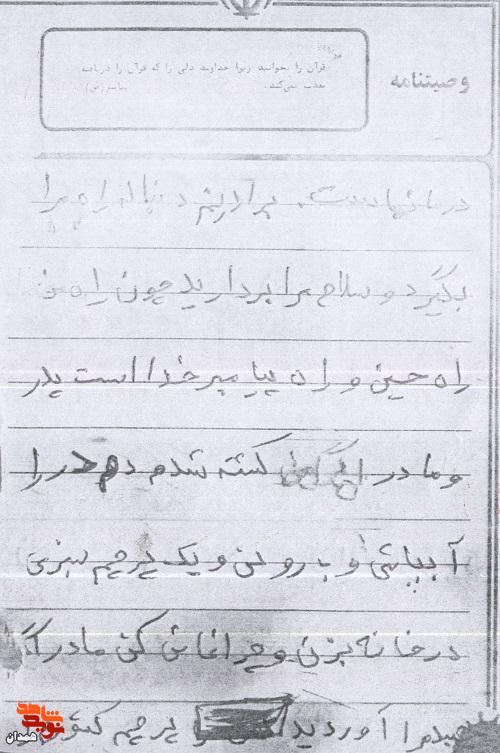 وصیتنامه
قرآن را بخوانید زیرا خداوند دلی را که قرآن را دریافته
عذاب نمی‌کند. پیامبر(ص)
درمانهاست. برادرینم دنباله راه مرا
بگیرد و سلاح مرا بردارید چون راه من
راه حسین و راه پیامبر خدا است پدر
و مادر اگر من کشته شدم دم در را
آبپاشی و بارو کن و یک پرچم سبزی
در خانه بزن و چراغانی کن مادر اگر
را آوردید و پرچم
شاهد
نوید
همدان